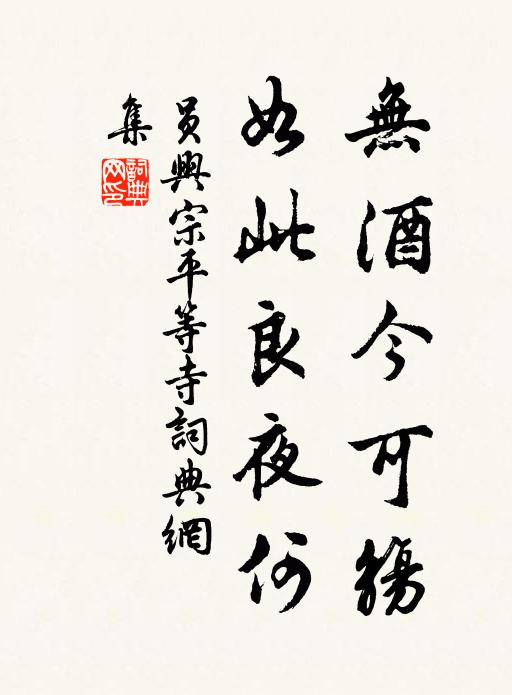 無酒今可觴
如此良夜何
員興宗平等寺詞典網
集
詞典網印